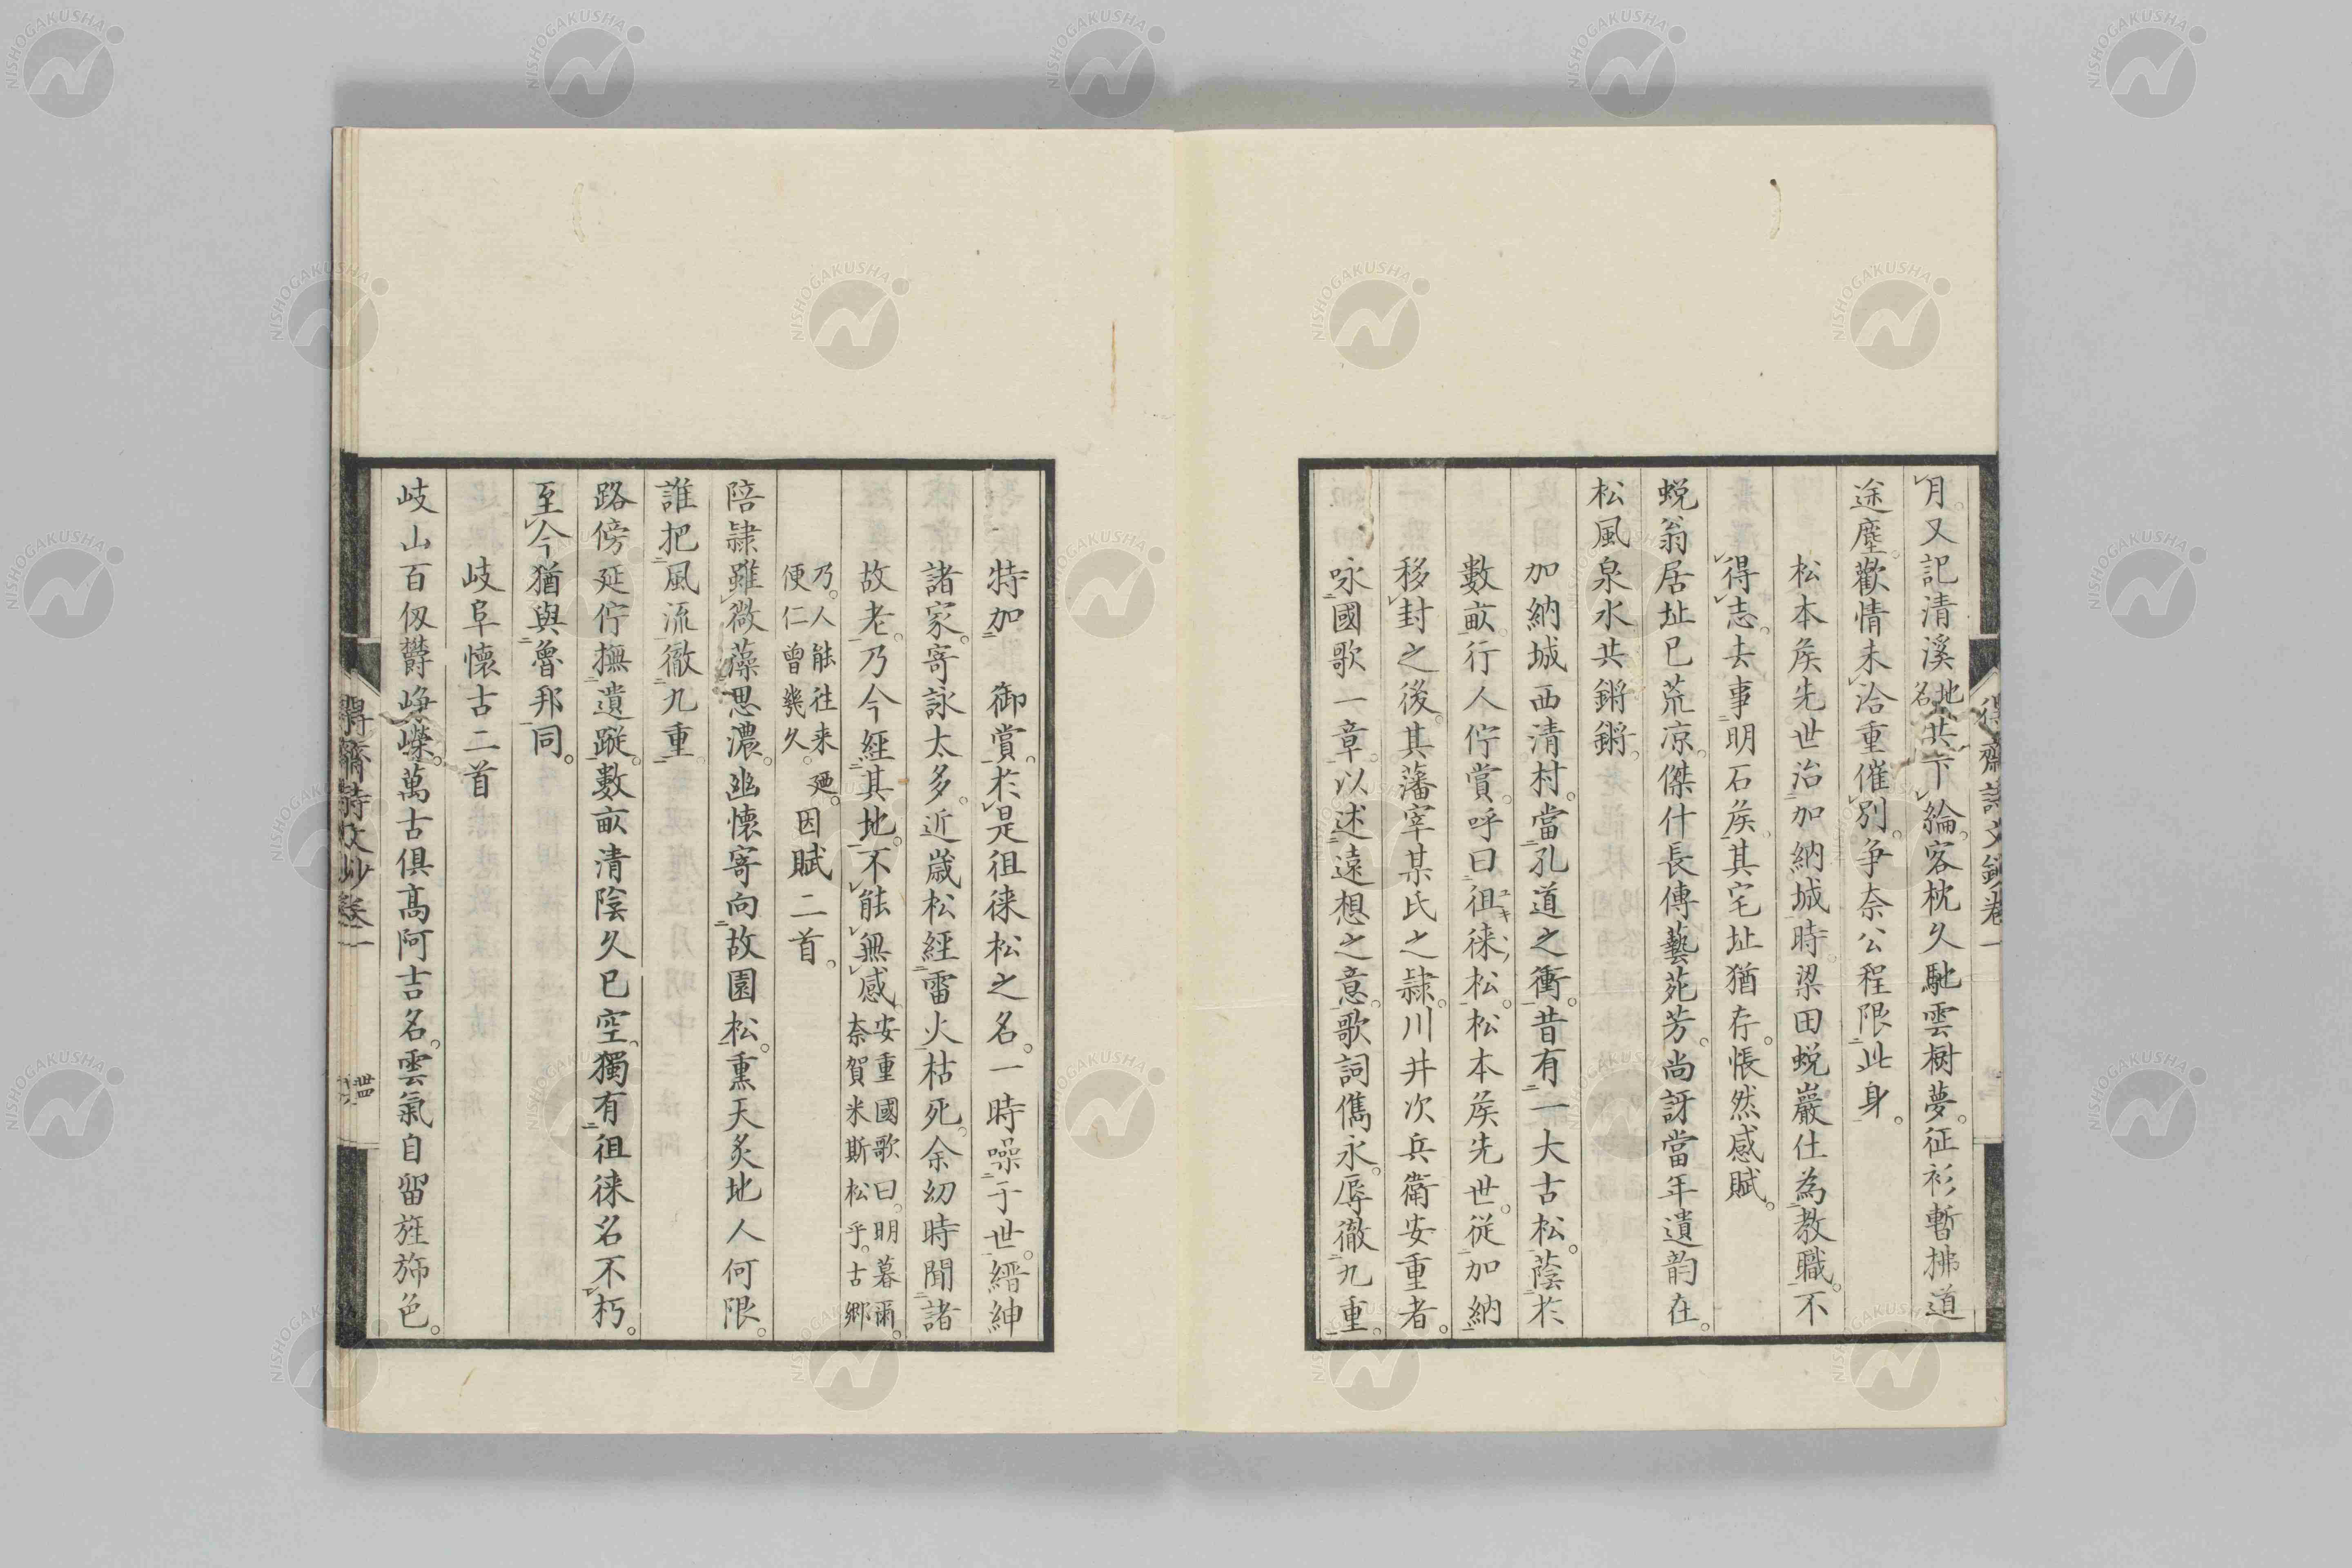 月又記清溪地名共下綸客枕久馳雲樹夢征衫暫拂道
途塵歡情未洽重催別爭奈公程限此身
松本矦先世治加納城時梁田蛻巖仕為教職不
得志去事明石矦其宅址猶存悵然感賦
蛻翁居址已荒凉傑什長傳藝苑芳尚訝當年遺韵在
松風泉水共鏘鏘
加納城西清村當孔道之衝昔有一大古松蔭於
數畝行人佇賞呼曰徂徠松松本矦先世從加納
移封之後其藩宰某氏之隷川井次兵衛安重者
咏國歌一章以述遠想之意歌詞儁永辱徹九重
特加 御賞於是徂徠松之名一時噪于世縉紳
諸家寄詠太多近歲松經雷火枯死余幼時聞諸
故老乃今經其地不能無感安重國歌曰明暮爾奈賀米斯松乎古鄉
乃人能往来便仁曾幾久廼因賦二首
陪隷雖微藻思濃幽懷寄向故園松熏天炙地人何限
誰把風流徹九重
路傍延佇撫遺蹤數畝清陰久已空獨有徂徠名不朽
至今猶與魯邦同
岐阜懷古二首
岐山百仭欝崢嶸萬古俱高阿吉名雲氣自留旌斾色
得齋詩文鈔卷一
NISHOGAKUSHA